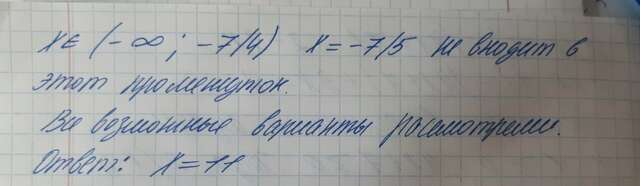 x∈ (-∞; -7/4) x=-7/5 не входит в
этот промежуток.
Все возможные варианты рассмотрели.
Ответ: x=11